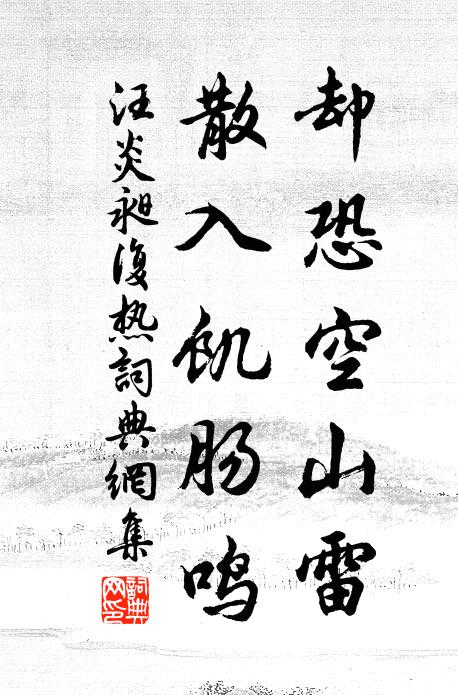 却恐空山雷
散入飢肠鸣
汪炎昶復热詞典網集
詞典网印